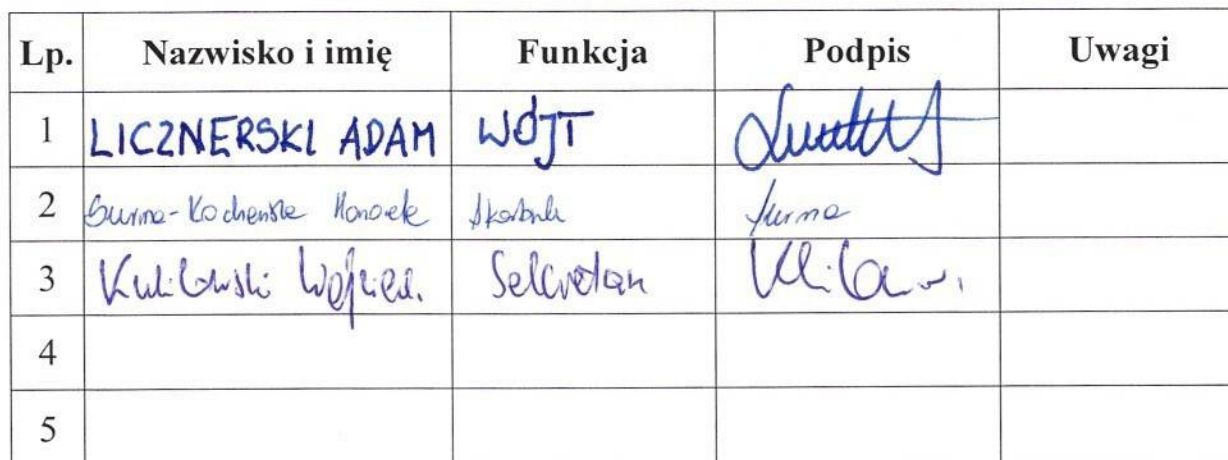 Lp. Nazwisko i imię Funkcja Podpis Uwagi
1 LICZNERSKI ADAM WÓJT
2 Surma-Kochańska Skarbnik Surma
3 Kulikowski Wojciech Sekretarz
4
5